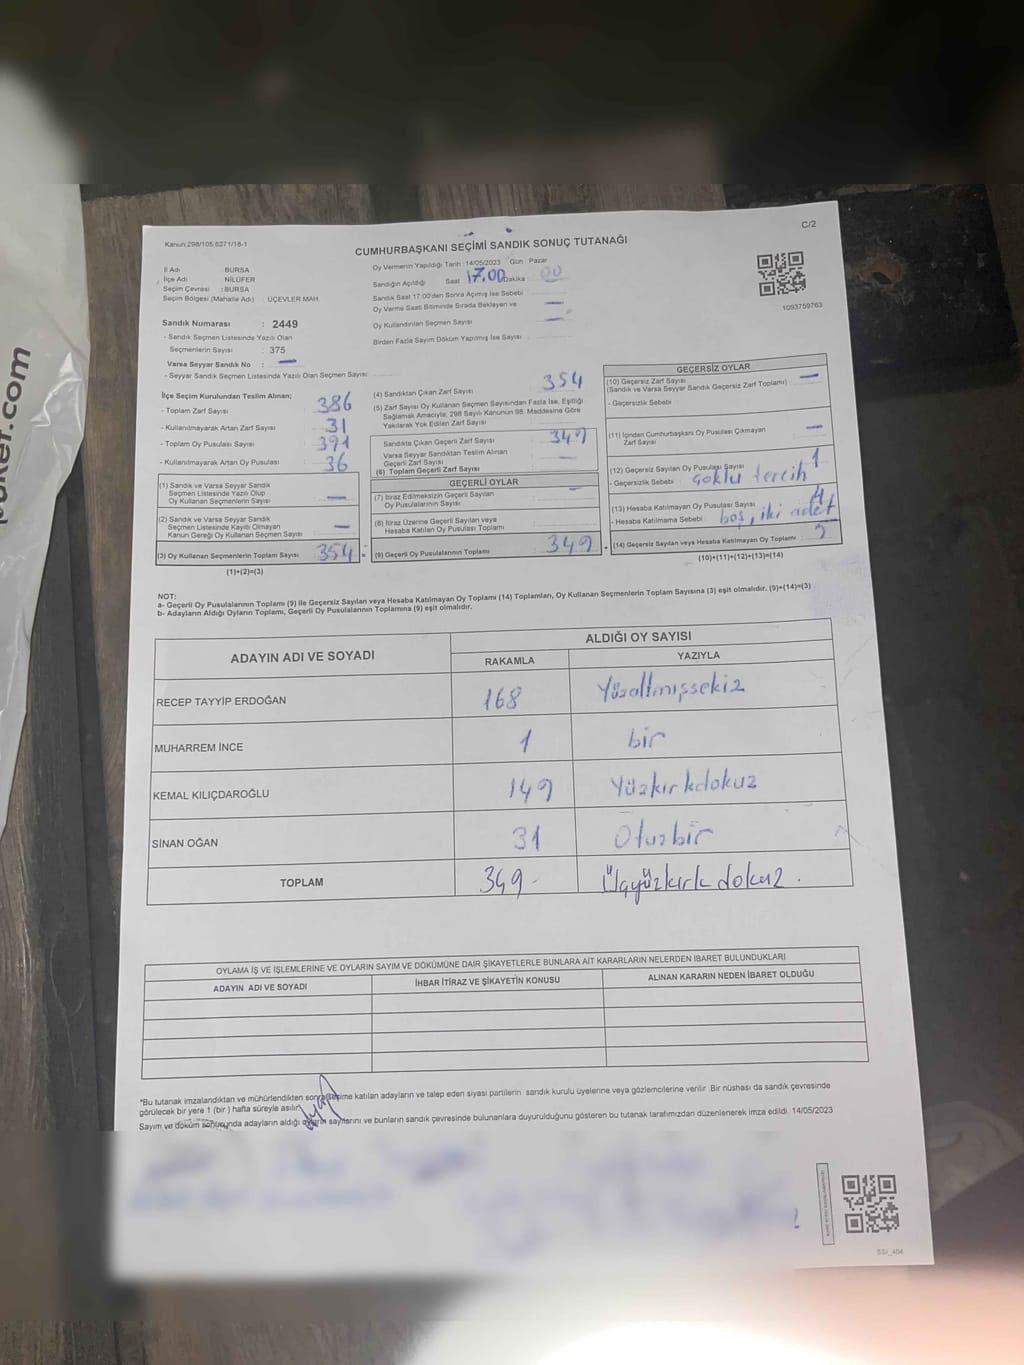 C/2
Kanun:298/105.6271/16-1
CUMHURBAŞKANI SEÇİMİ SANDIK SONUÇ TUTANAĞI
İl Adı BURSA
İlçe Adı NİLÜFER
Seçim Çevresi : BURSA
Seçim Bölgesi (Mahalle Adı) ÜÇEVLER MAH.
Sandık Numarası : 2449
- Sandık Seçmen Listesinde Yazılı Olan
Seçmenlerin Sayısı : 375
Varsa Seyyar Sandık No : —
- Seyyar Sandık Seçmen Listesinde Yazılı Olan Seçmen Sayısı:
Oy Vermenin Yapıldığı Tarih : 14/05/2023 Gün : Pazar
Sandığın Açıldığı Saat 17.00 Dakika : 00
Sandık Saat 17.00'den Sonra Açımış İse Sebebi
Oy Verme Saati Bitiminde Sırada Bekleyen ve —
Oy Kullandırılan Seçmen Sayısı —
Birden Fazla Sayım Döküm Yapılmış İse Sayısı
1093759763
İlçe Seçim Kurulundan Teslim Alınan;
- Toplam Zarf Sayısı : 386
- Kullanılmayarak Artan Zarf Sayısı : 31
- Toplam Oy Pusulası Sayısı : 391
- Kullanılmayarak Artan Oy Pusulası : 36
(1) Sandık ve Varsa Seyyar Sandık
Seçmen Listesinde Yazılı Olup
Oy Kullanan Seçmenlerin Sayısı : —
(2) Sandık ve Varsa Seyyar Sandık
Seçmen Listesinde Kayıtlı Olmayan
Kanun Gereği Oy Kullanan Seçmen Sayısı : —
(3) Oy Kullanan Seçmenlerin Toplam Sayısı : 354
(1)+(2)=(3)
(4) Sandıktan Çıkan Zarf Sayısı : 354
(5) Zarf Sayısı Oy Kullanan Seçmen Sayısından Fazla İse, Eşitliği
Sağlamak Amacıyla, 298 Sayılı Kanunun 98. Maddesine Göre
Yakılarak Yok Edilen Zarf Sayısı
Sandıkta Çıkan Geçerli Zarf Sayısı : 349
Varsa Seyyar Sandıktan Teslim Alınan
Geçerli Zarf Sayısı : —
(6) Toplam Geçerli Zarf Sayısı
GEÇERLİ OYLAR
(7) İtiraz Edilmeksizin Geçerli Sayılan
Oy Pusulalarının Sayısı : —
(8) İtiraz Üzerine Geçerli Sayılan veya
Hesaba Katılan Oy Pusulası Toplamı
(9) Geçerli Oy Pusulalarının Toplamı : 349
GEÇERSİZ OYLAR
(10) Geçersiz Zarf Sayısı
(Sandık ve Varsa Seyyar Sandık Geçersiz Zarf Toplamı) : —
- Geçersizlik Sebebi :
(11) İçinden Cumhurbaşkanı Oy Pusulası Çıkmayan
Zarf Sayısı : —
(12) Geçersiz Sayılan Oy Pusulası Sayısı : 1
- Geçersizlik Sebebi : çoklu tercih
(13) Hesaba Katılmayan Oy Pusulası Sayısı : 4
- Hesaba Katılmama Sebebi : boş, iki adet
(14) Geçersiz Sayılan veya Hesaba Katılmayan Oy Toplamı :
(10)+(11)+(12)+(13)=(14)
NOT:
a- Geçerli Oy Pusulalarının Toplamı (9) ile Geçersiz Sayılan veya Hesaba Katılmayan Oy Toplamı (14) Toplamları, Oy Kullanan Seçmenlerin Toplam Sayısına (3) eşit olmalıdır. (9)+(14)=(3)
b- Adayların Aldığı Oyların Toplamı, Geçerli Oy Pusulalarının Toplamına (9) eşit olmalıdır.
ADAYIN ADI VE SOYADI
ALDIĞI OY SAYISI
RAKAMLA YAZIYLA
RECEP TAYYİP ERDOĞAN 168 Yüzaltmışsekiz
MUHARREM İNCE 1 bir
KEMAL KILIÇDAROĞLU 149 Yüzkırkdokuz
SİNAN OĞAN 31 Otuzbir
TOPLAM 349- Üçyüzkırkdokuz.
OYLAMA İŞ VE İŞLEMLERİNE VE OYLARIN SAYIM VE DÖKÜMÜNE DAİR ŞİKAYETLERLE BUNLARA AİT KARARLARIN NELERDEN İBARET BULUNDUKLARI
ADAYIN ADI VE SOYADI İHBAR İTİRAZ VE ŞİKAYETİN KONUSU ALINAN KARARIN NEDEN İBARET OLDUĞU
*Bu tutanak imzalandıktan ve mühürlendikten sonra seçime katılan adayların ve talep eden siyasi partilerin sandık kurulu üyelerine veya gözlemcilerine verilir. Bir nüshası da sandık çevresinde
görülecek bir yere 1 (bir ) hafta süreyle asılır.
Sayım ve döküm sonucunda adayların aldığı oyların sayılarını ve bunların sandık çevresinde bulunanlara duyurulduğunu gösteren bu tutanak tarafımızdan düzenlenerek imza edildi. 14/05/2023
SSI_404